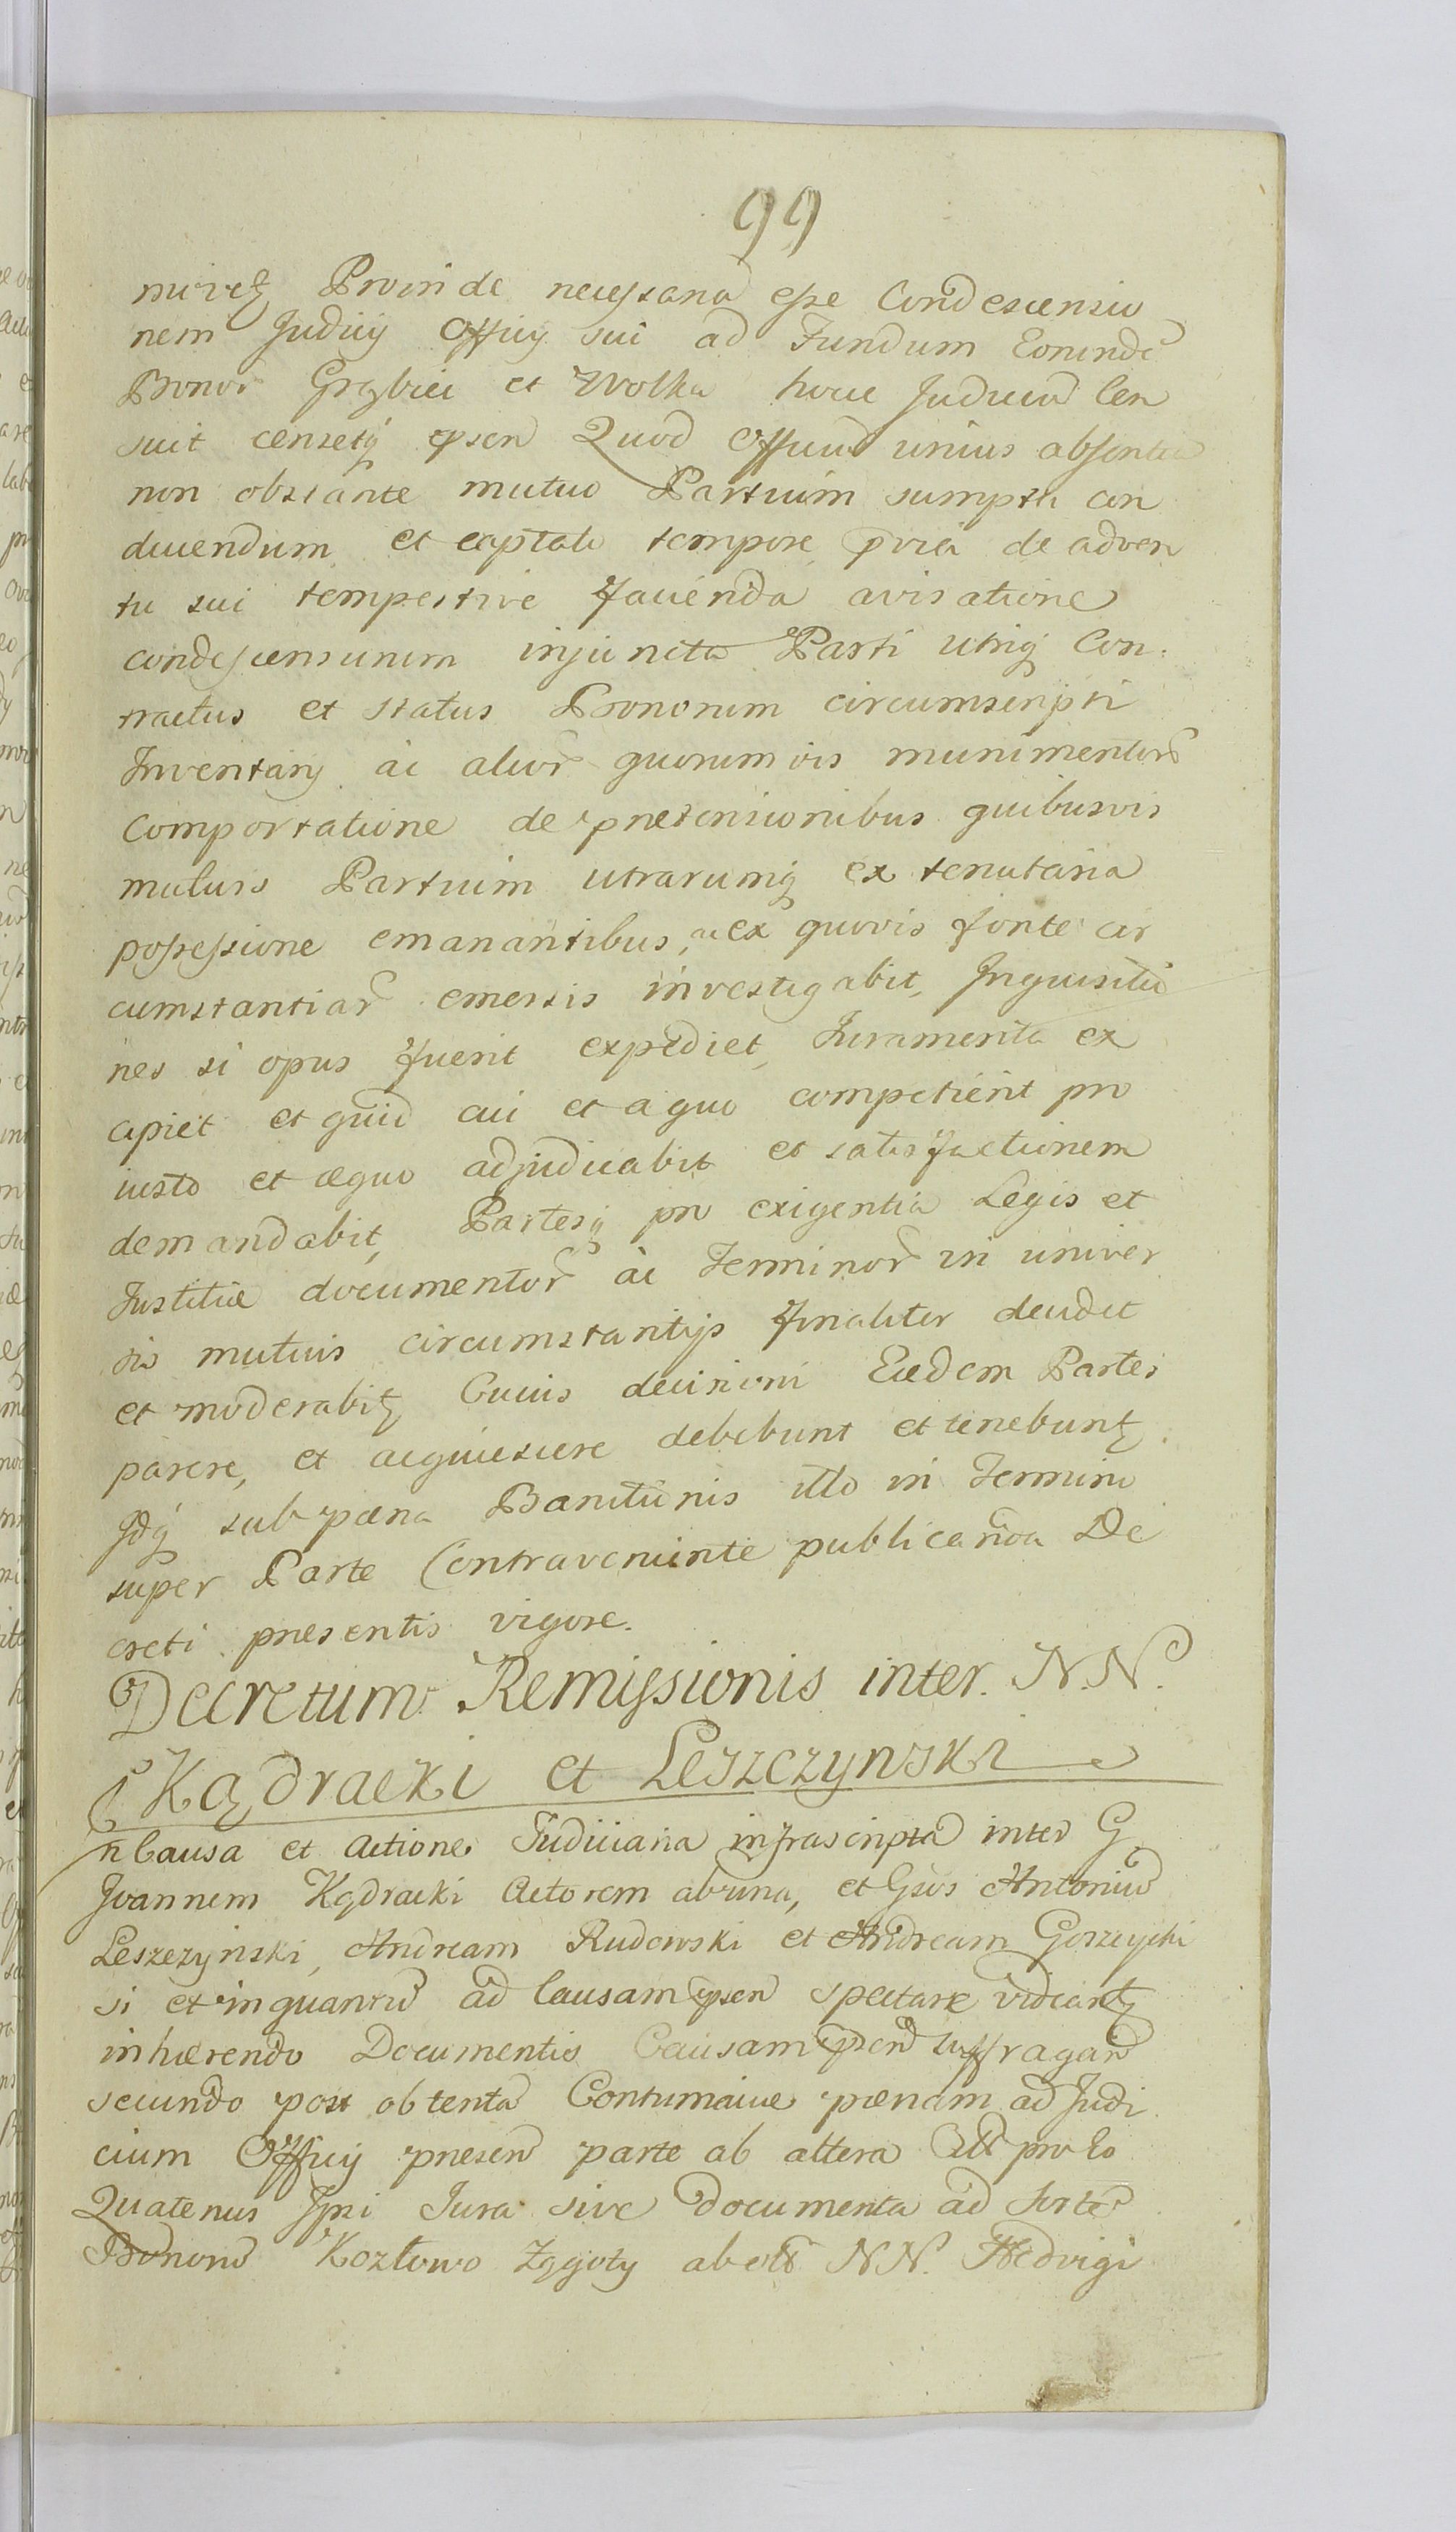 99
niret Proinde necessariã esse Condescensio
nem Judicÿ Officÿ sui ad Fundum Eorundẽ
Bonoȓ Grzbiei et Wolka hocce Judiciũ Cen
suit censetq̃ epsen Quod Officiũ unius absentia
non obstante mutuo Partium sumptu con
ducendum et captato tempore pvia de adven
tu sui tempestive facienda avisatione
condescensurum injuncta Parti utriq̃ Con.
tractus et status Bonorum circumscripti
Inventarÿ ac alioȓ quorumvis munimentoȓ
Comportatione de prætensionibus quibusvis
mutuis Partium utrarumq̃ ex tenutaria
possessione emanantibus, ac ex quovis fonte cir
cumstantiaȓ emersis investigabit, Inquisitio
nes si opus fuerit expediet, Juramenta ex
cipiet et quid cui et a quo competierit pro
iusto et æquo adjudicabit et satisfactionem
demandabit, Partesq̃ pro exigentia Legis et
Justitiæ documentoȓ ac Terminoȓ in univer
sis mutuis circumstantÿs finaliter decidet
et moderabit Cuius decisioni Eædem Partes
parere, et acquiescere debebunt et tenebunt
Idq̃ sub pæna Banitionis illo in Termino
super Parte Contraveniente publicanda De
creti presentis vigore.
Decretum Remissionis inter N.N.
Kądracki et Leszczynski
In Causa et Actione Judiciaria infrascripta inter G
Joannem Kądracki Actorem ab una, et Gsos Antoniũ
Leszczyński, Andream Rudowski et Andream Gorzycki
si et inquantũ ad Causam psen spectare videant
inhærendo Documentis Causam psen suffragan
secundo post obtentã Contumaciæ pænam ad Judi
cium Officÿ presens parte ab altera Ctt pro Eo
Quatenus Ipsi Jura sive Documenta ad Sortẽ
Bonorũ Kozłowo Zgoty ab olt NN. Hedvigi